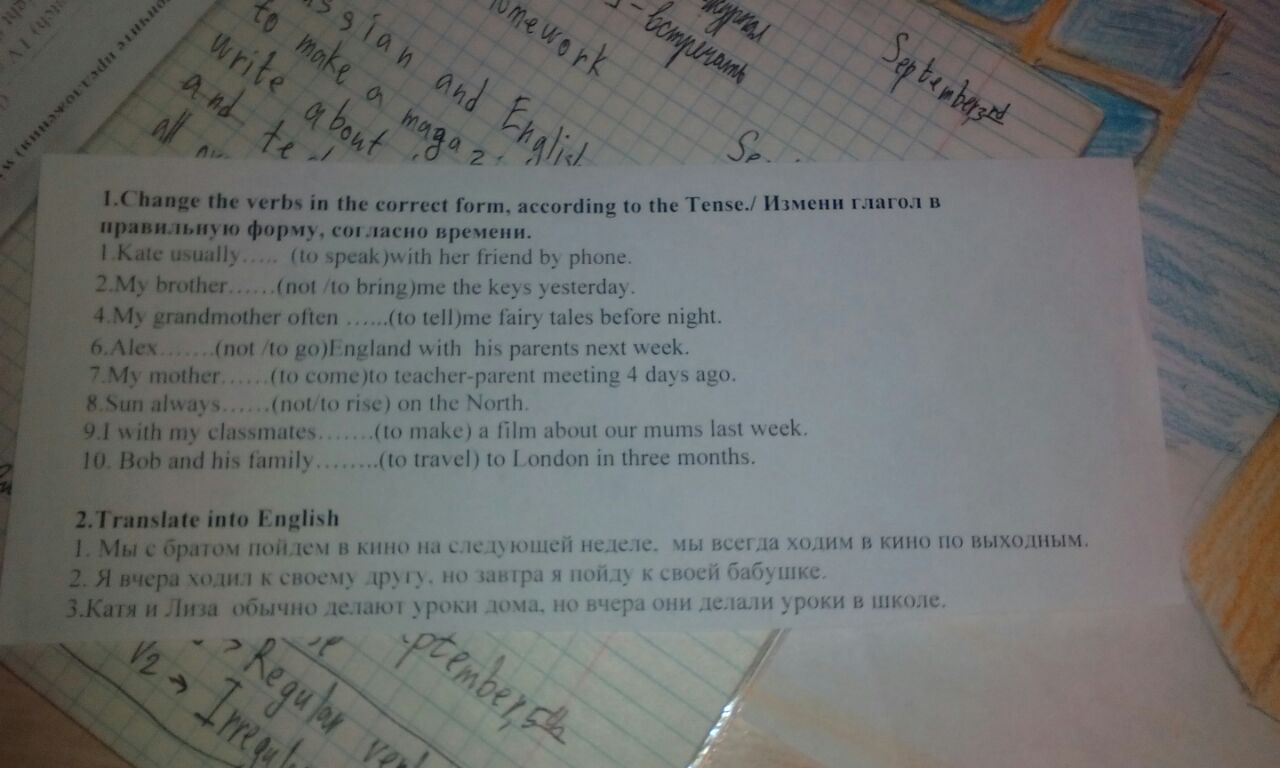 ssian and English
to make a maga
write about
and te
all
omework
журнал
встречать
September,3rd
Se
1.Change the verbs in the correct form, according to the Tense./ Измени глагол в
правильную форму, согласно времени.
1.Kate usually….. (to speak)with her friend by phone.
2.My brother……(not /to bring)me the keys yesterday.
4.My grandmother often ……(to tell)me fairy tales before night.
6.Alex…….(not /to go)England with his parents next week.
7.My mother……(to come)to teacher-parent meeting 4 days ago.
8.Sun always……(not/to rise) on the North.
9.I with my classmates…….(to make) a film about our mums last week.
10. Bob and his family……..(to travel) to London in three months.
2.Translate into English
1. Мы с братом пойдем в кино на следующей неделе, мы всегда ходим в кино по выходным.
2. Я вчера ходил к своему другу, но завтра я пойду к своей бабушке.
3.Катя и Лиза обычно делают уроки дома, но вчера они делали уроки в школе.
eptember,5th
Regular ver
V2 → Irregula